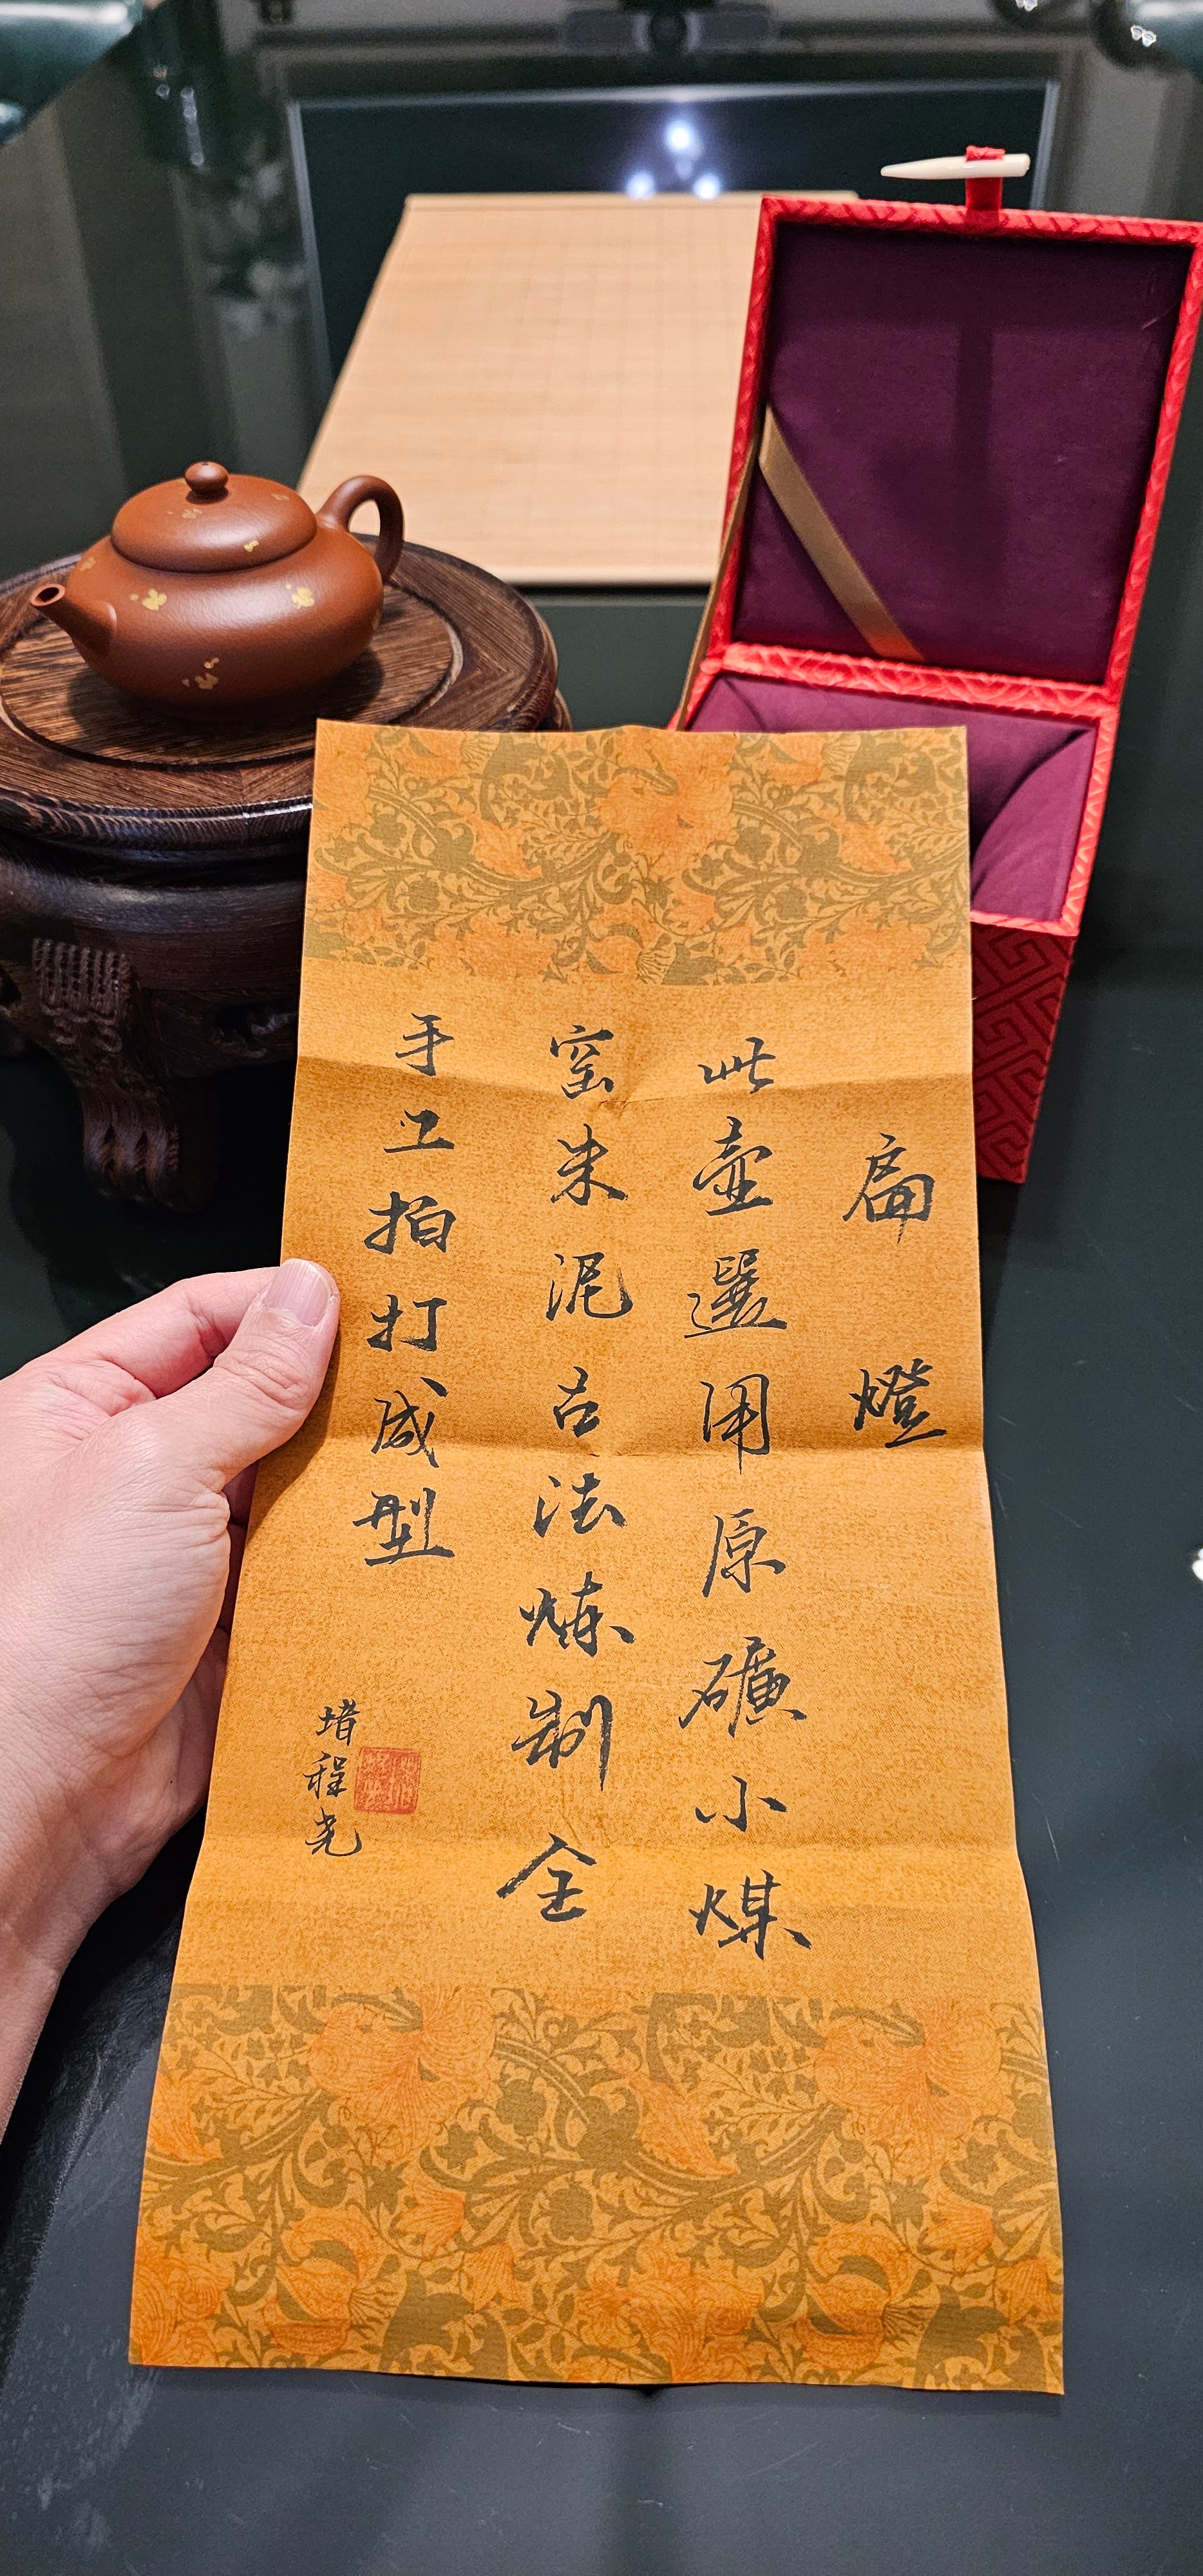 扁燈
此壺選用原礦小煤
窑朱泥古法煉制全
手工拍打成型
堵程尧